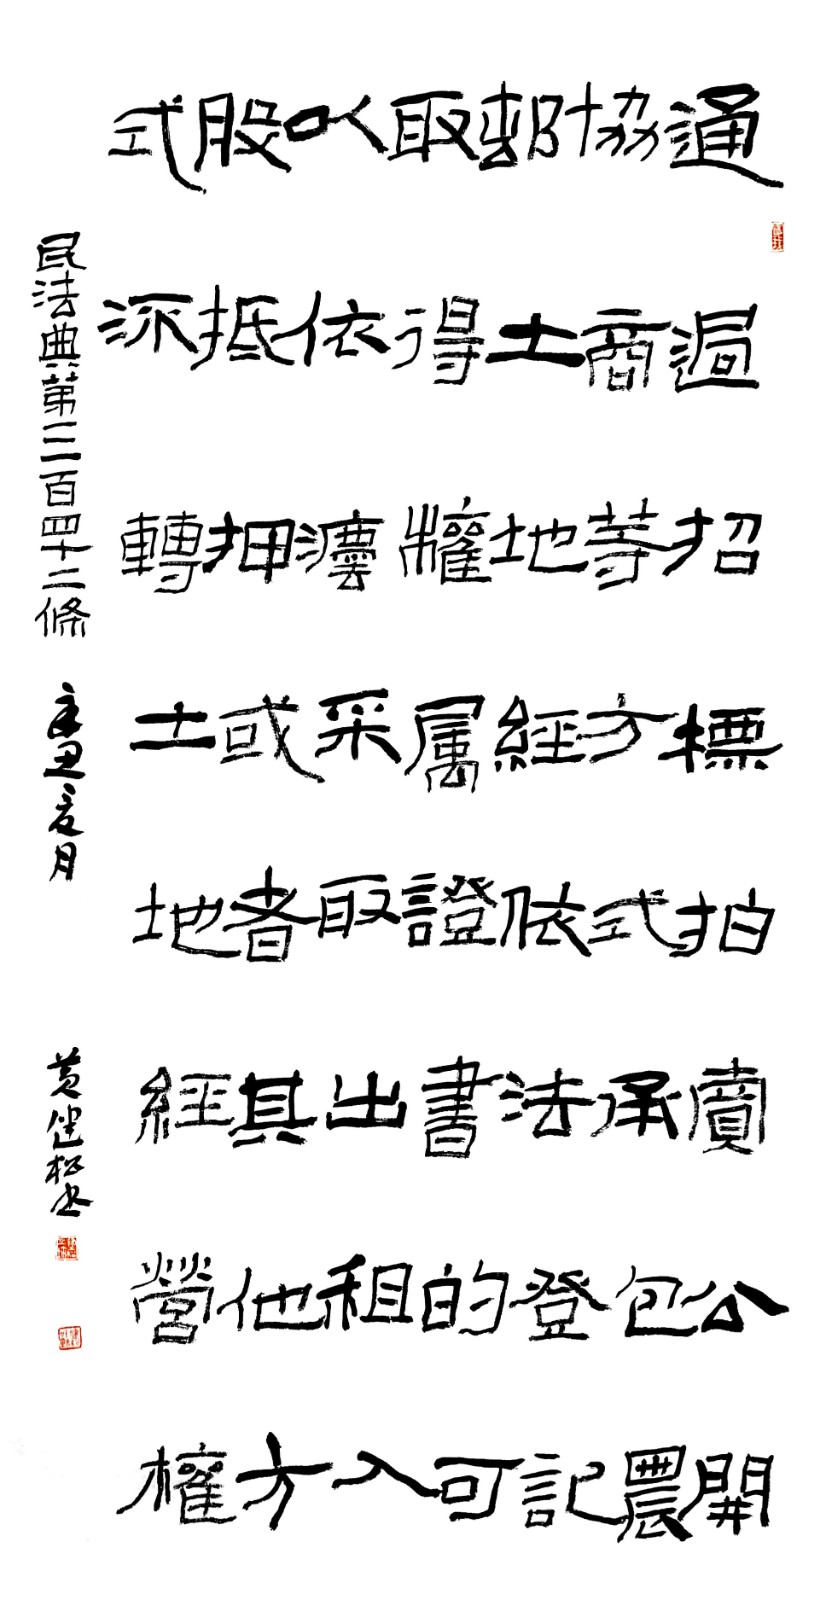 通過招標拍賣公開
協商等方式承包農
邨土地經依法登記
取得權属證書的可
以依灋采取出租入
股抵押或者其他方
式流轉土地經營權
民法典第三百四十二條 辛丑夏月 黄健松书